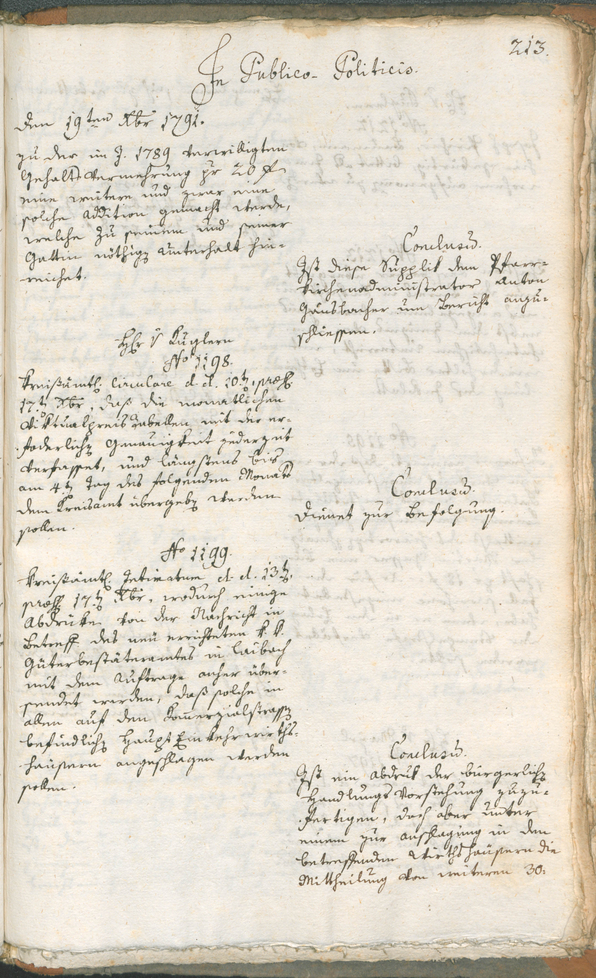 213.
In Publico-Politicis.
Den 19ten Xbr 1791.
zu der im J. 1789 verwilligten
Gehalts Vermehrung pr 20 f.
eine weitere und zwar eine
solche Addition gemacht werde,
welche zu seinem und seiner
Gattin nöthig Unterhalt hin-
reichet.
Conclusū.
Ist diese Supplik dem Pfarr-
Kirchenadministrator Anton
Gänsbacher um Bericht anzu-
schliessen.
Hr v Kuglern
No 1198.
Kreisämtl. Circulare d. d. 10t, praes.
17t Xbr, daß die monatlichen
Viktualpreis tabellen mit der er-
foderlich Genauigkeit jederzeit
verfasset, und längstens bis
am 4t Tag des folgenden Monats
dem Kreisamt übergeb werden
sollen.
Conclusū.
Dienet zur Befolgung.
No 1199.
Kreisämtl. Intimatum d. d. 13t,
praes. 17t Xbr, wodurch einige
Abdrücke von der Nachricht in
Betreff des neu errichteten k. k.
Güterbestäteramtes in Laibach
mit dem Auftrage anher über-
sendet werden, daß solche in
allen auf den Kommerzialstrass
befindlich Haupt Einkehrwirths-
häusern angeschlagen werden
sollen.
Conclusū.
Ist ein Abdruk der bürgerlich
Handlungs Vorstehung zuzu-
fertigen, doch aber unter
einem zur Anschlagung in den
betreffenden Wirthshäusern die
Mittheilung von weiteren 30: